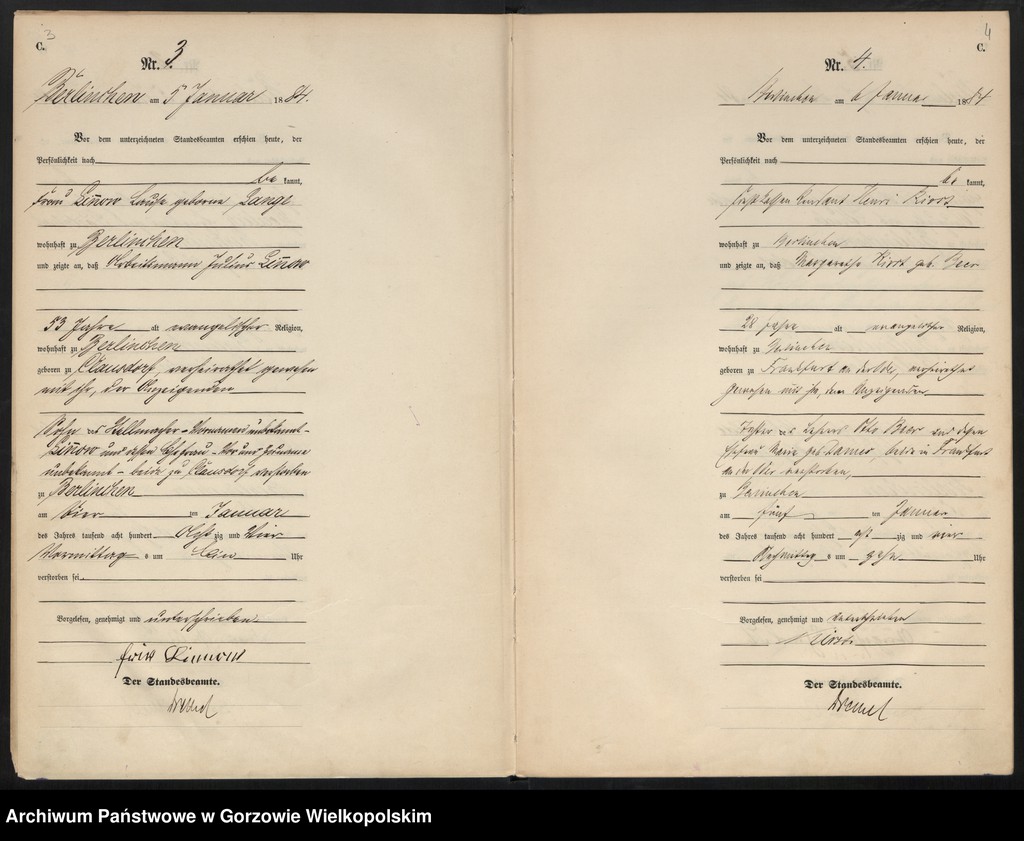 3
C.
Nr. 3.
Berlinchen am 5 Januar 1884.
Vor dem unterzeichneten Standesbeamten erschien heute, der
Persönlichkeit nach
be kannt,
Frau Linow Louise geborene Lange
wohnhaft zu Berlinchen
und zeigte an, daß Arbeitsmann Julius Linow
53 Jahre alt evangelischer Religion,
wohnhaft zu Berlinchen
geboren zu Clausdorf, verheirathet gewesen
mit ihr, der Anzeigenden
Sohn des Vornamens unbekannt -
Linow und dessen Ehefrau - Vor und zuname
unbekannt - beide zu Clausdorf verstorben
zu Berlinchen
am Vier ten Januar
des Jahres tausend acht hundert Acht zig und Vier
Vormittag s um Uhr
verstorben sei.
Vorgelesen, genehmigt und unterschrieben
Linnow
Der Standesbeamte.
4
C.
Nr. 4.
Berlinchen am 6 Januar 1884
Vor dem unterzeichneten Standesbeamten erschien heute, der
Persönlichkeit nach
be kannt,
Henri
wohnhaft zu Berlinchen
und zeigte an, daß Margarethe geb. Beer
28 Jahre alt evangelischer Religion,
wohnhaft zu Berlinchen
geboren zu Frankfurt an der Oder, verheirathet
gewesen mit ihm, dem Anzeigenden
Tochter des Lehrers Otto Beer und dessen
Ehefrau Marie geb. beide in Frankfurt
an der Oder verstorben,
zu Berlinchen
am fünf ten Januar
des Jahres tausend acht hundert acht zig und vier
Nachmittag s um zehn Uhr
verstorben sei
Vorgelesen, genehmigt und unterschrieben
Der Standesbeamte.
Archiwum Państwowe w Gorzowie Wielkopolskim